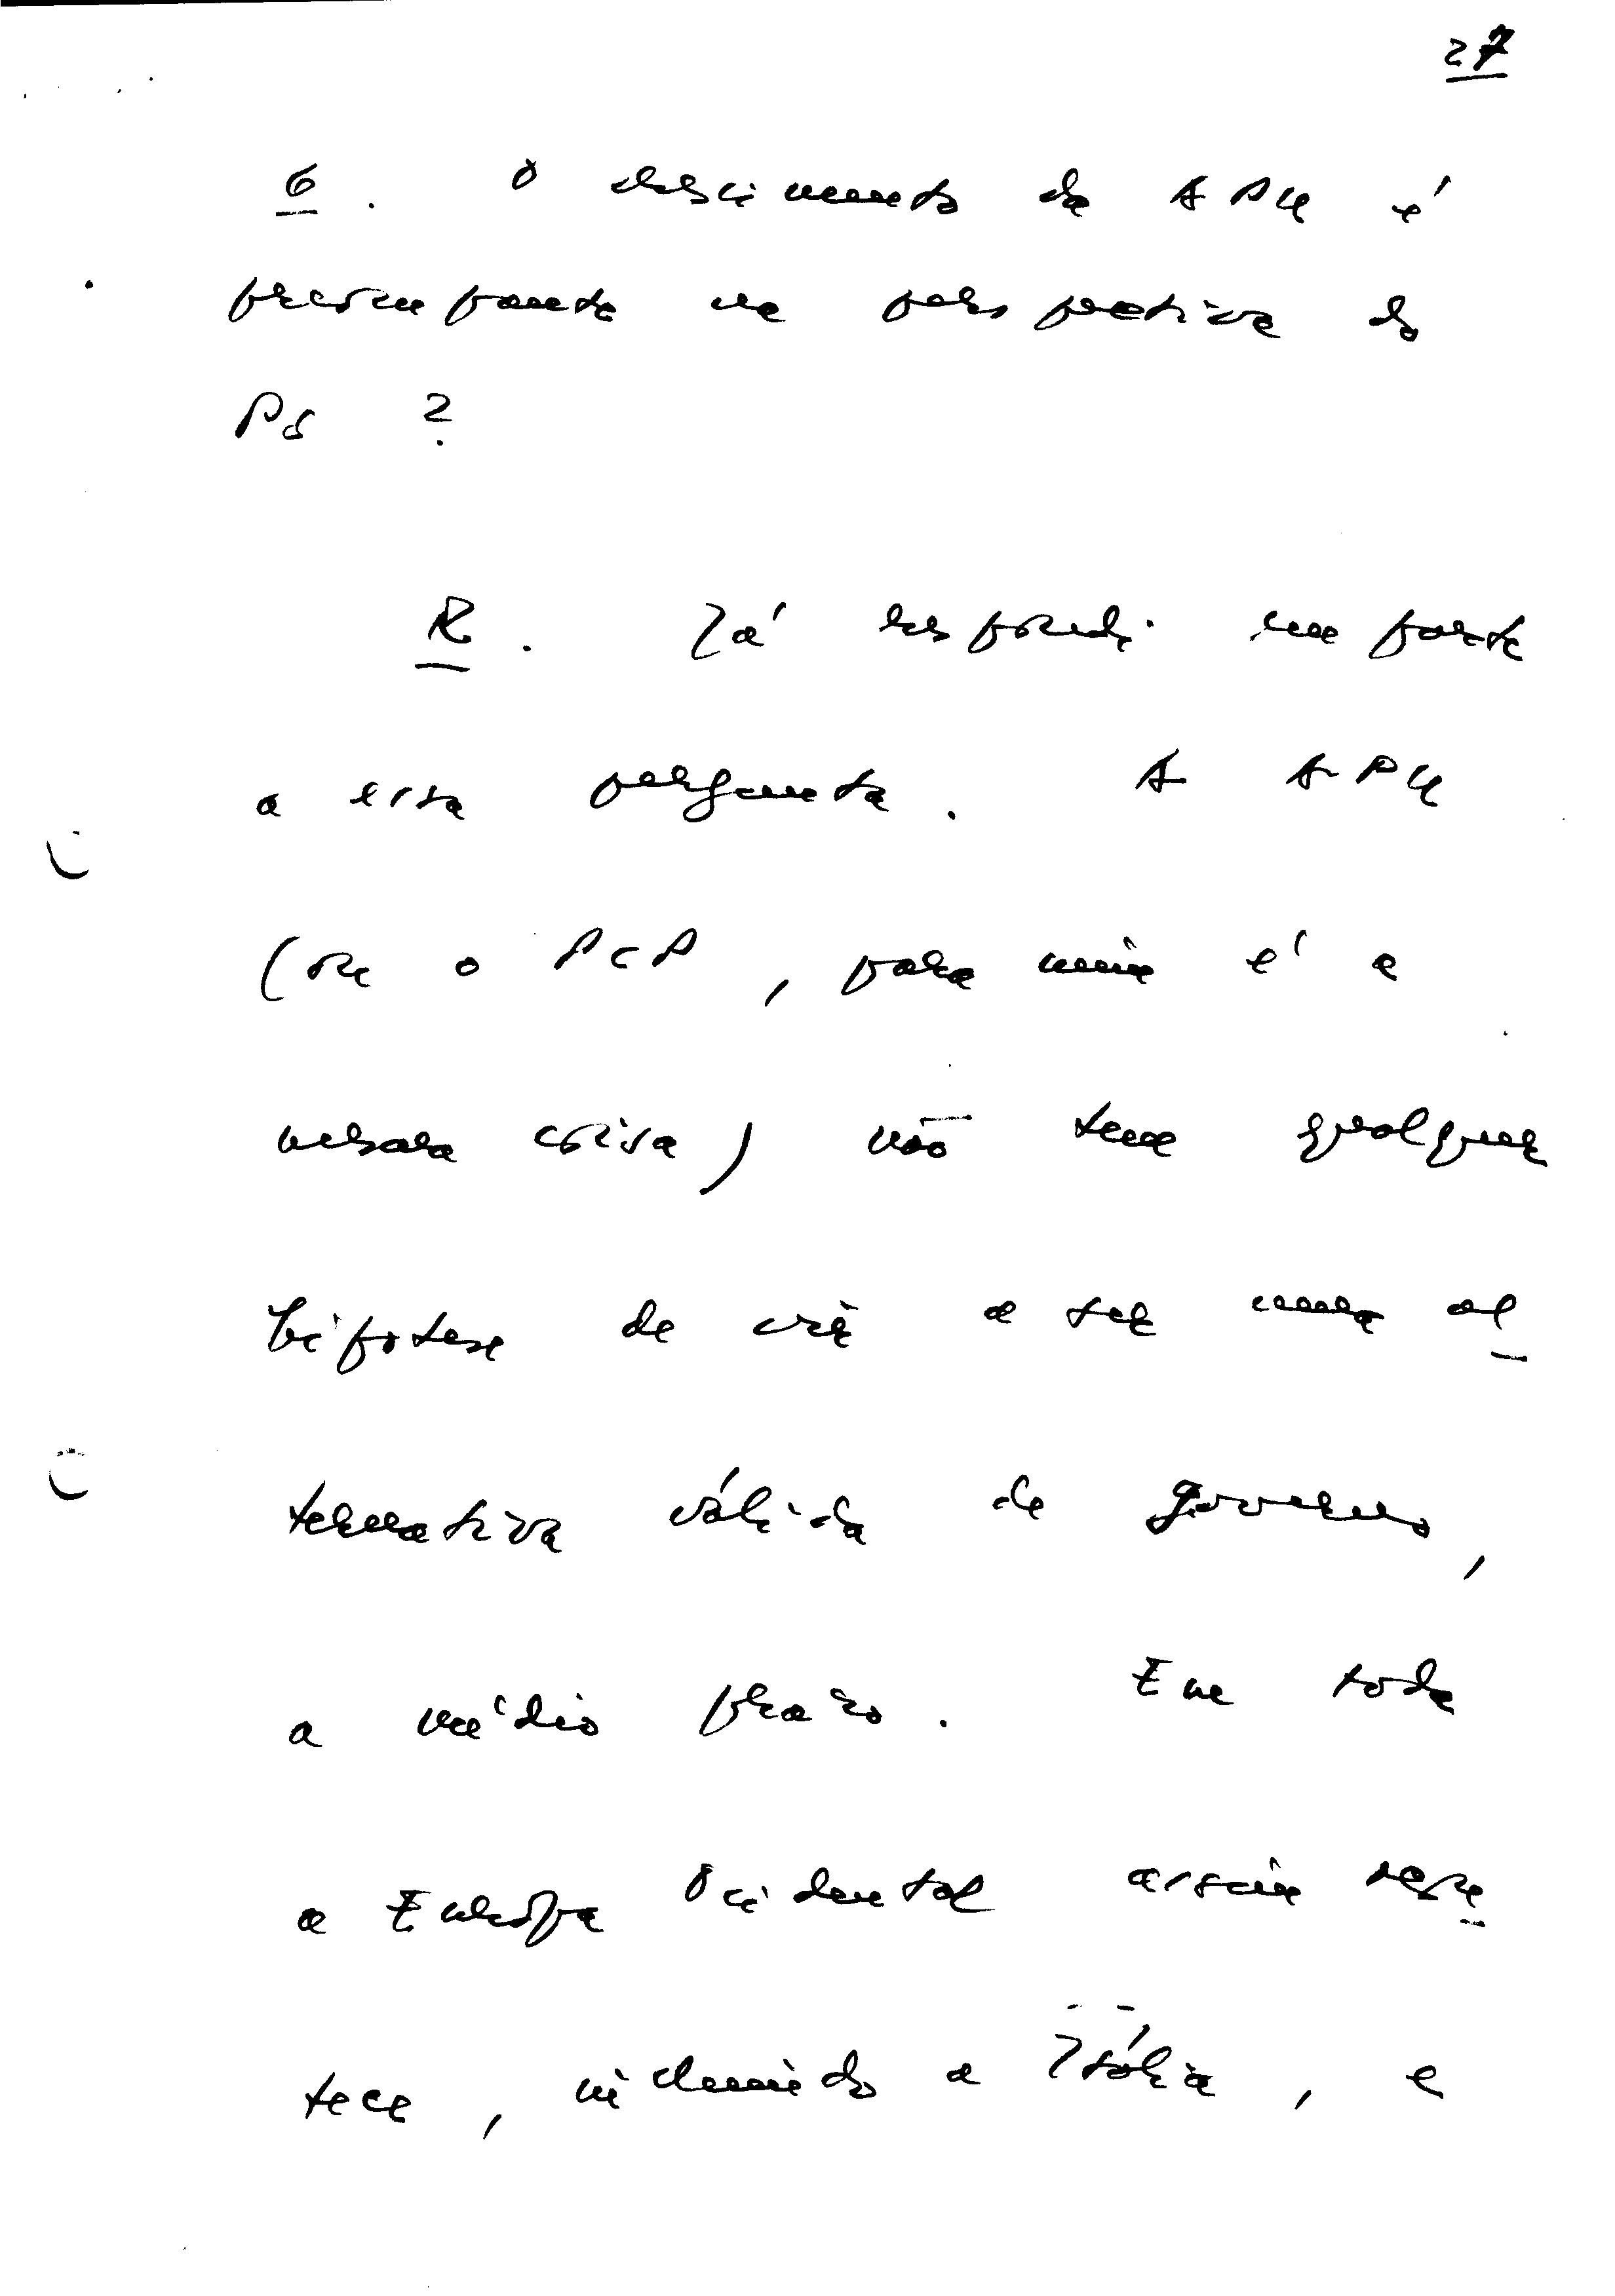 27
6. O crescimento da APU é
preocupante na perspectiva do
PS?
R. Já respondi em parte
a essa pergunta. A APU
(ou o PCP, para mim é a
mesma coisa) não tem qualquer
hipótese de vir a ser uma al-
ternativa válida de governo,
a médio prazo. Em toda
a Europa Ocidental assim
tece, incluindo a Itália, e